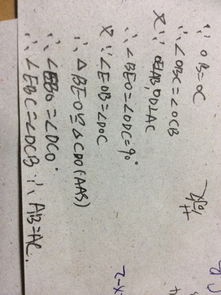 ∵ OB=OC
∴ ∠OBC=∠OCB
又∵ OE⊥AB, OD⊥AC
∴ ∠BEO=∠ODC=90°
又∵ ∠EOB=∠DOC
∴ △BEO≌△CDO(AAS)
∴ ∠EBO=∠DCO
∴ ∠EBC=∠DCB ∴ AB=AC.